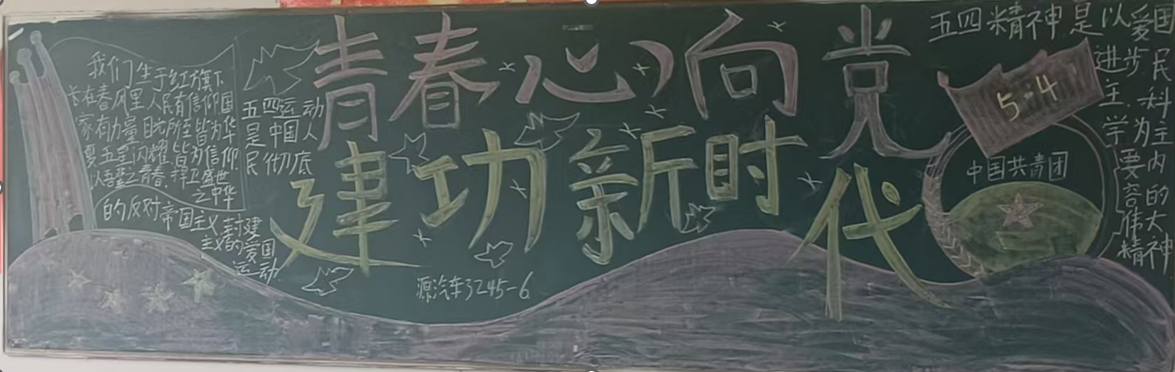 青春心向党
建功新时代
我们生于红旗下
长在春风里人民有信仰国
家有力量目光所至皆为华
夏五星闪耀皆为信仰
以吾辈之青春捍卫盛世
之中华
五四运动
是中国人
民彻底
的反对帝国主义封建
主义的爱国
运动
汽车3245-6
五四精神是以爱国
进步民
主科
学为主
要内
容的
伟大
精神
5·4
中国共青团